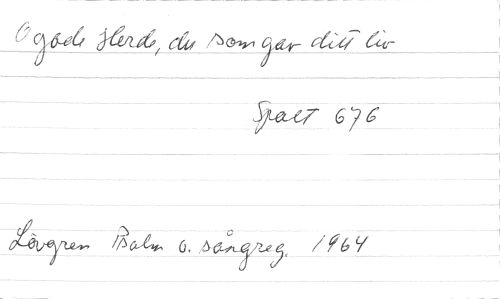 O gode Herde, du som gav ditt liv
Spalt 676
Lövgren Psalm o. sångreg. 1964